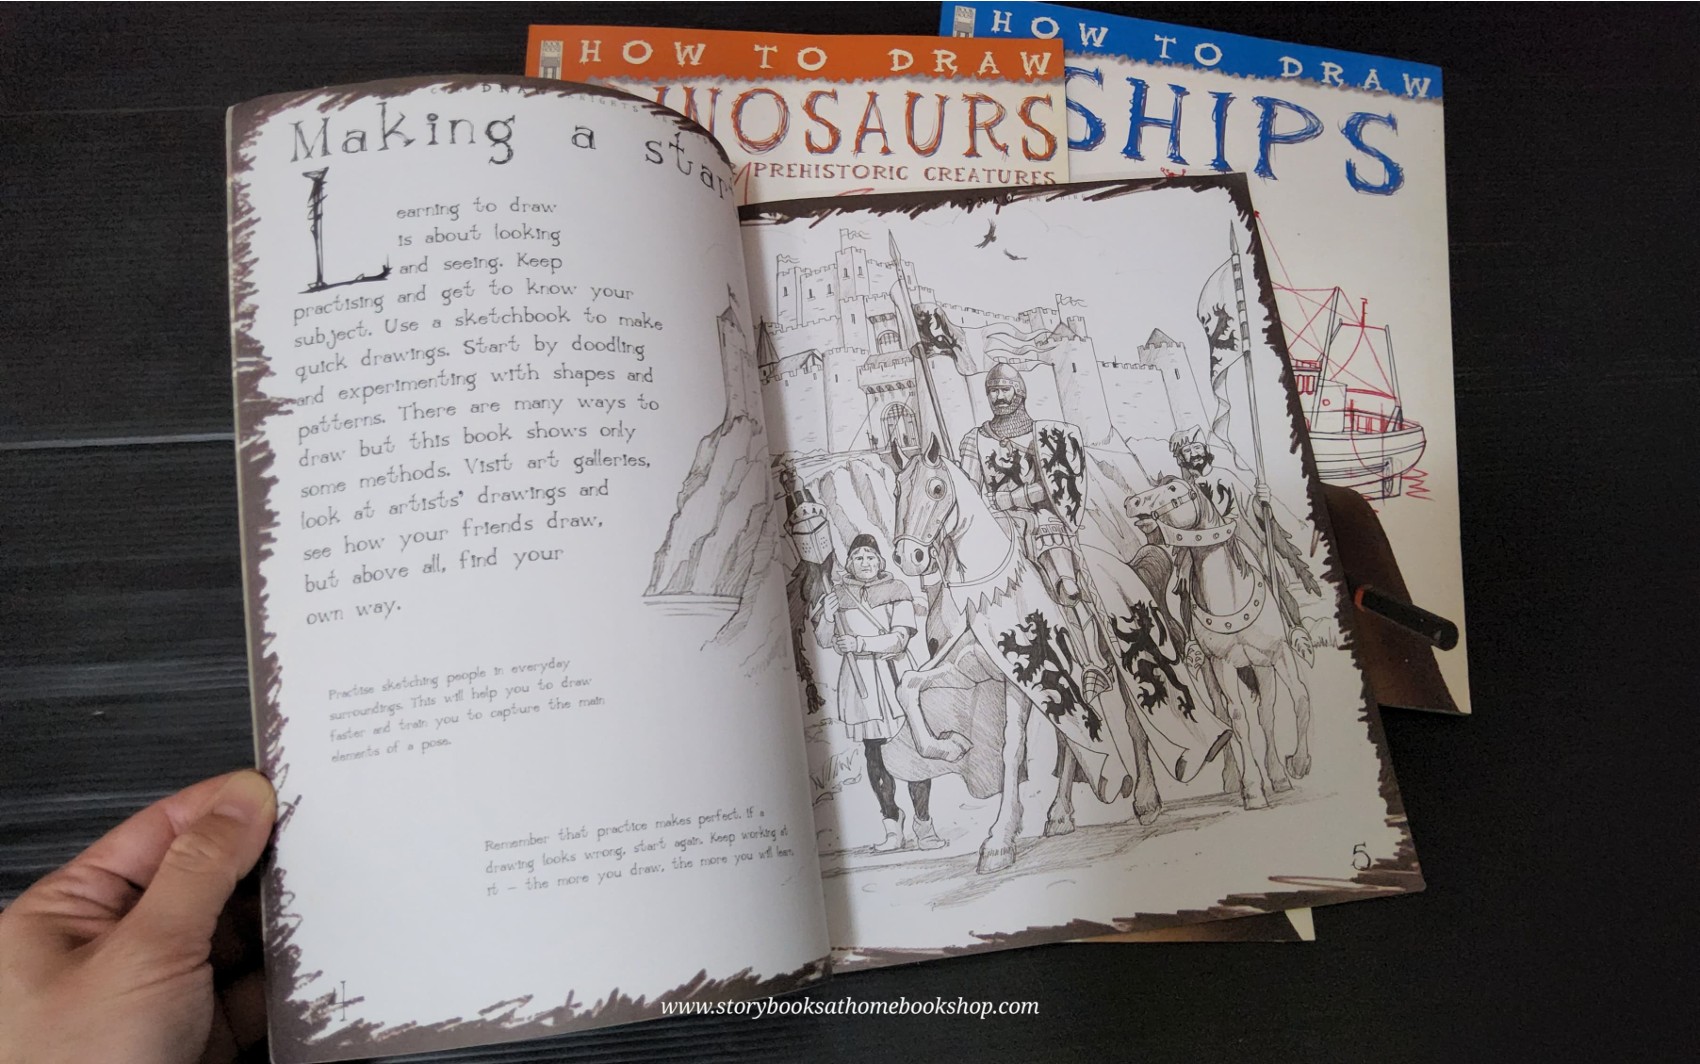 HOW TO DRAW
SHIPS
HOW TO DRAW
DINOSAURS
PREHISTORIC CREATURES
Making a star
Learning to draw
is about looking
and seeing. Keep
practising and get to know your
subject. Use a sketchbook to make
quick drawings. Start by doodling
and experimenting with shapes and
patterns. There are many ways to
draw but this book shows only
some methods. Visit art galleries,
look at artists' drawings and
see how your friends draw,
but above all, find your
own way.
Practise sketching people in everyday
surroundings. This will help you to draw
faster and train you to capture the main
elements of a pose.
Remember that practice makes perfect. If a
drawing looks wrong, start again. Keep working at
it – the more you draw, the more you will learn.
4
5
www.storybooksathomebookshop.com